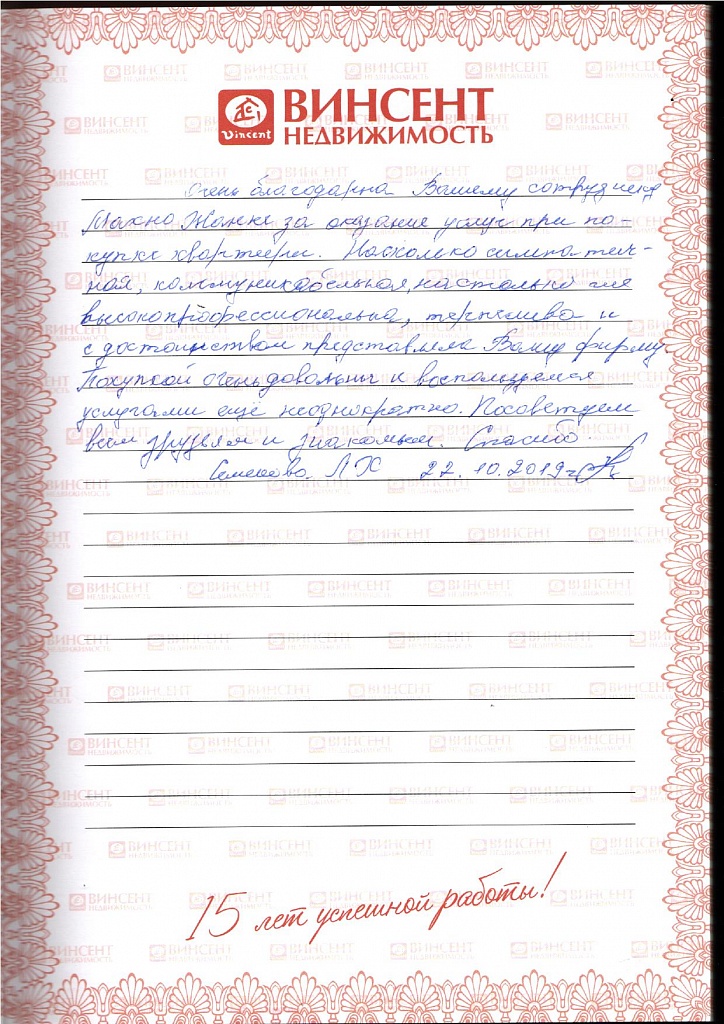 Vincent
ВИНСЕНТ
НЕДВИЖИМОСТЬ
Очень благодарна Вашему сотруднику
Махно Жанне за оказание услуг при по-
купке квартиры. Насколько симпатич-
ной, коммуникабельная, настолько же
высокопрофессиональна, терпелива и
с достоинством представляла Вашу фирму.
Покупкой очень довольны и воспользуемся
услугами ещё неоднократно. Посоветуем
всем друзьям и знакомым. Спасибо.
Л Х 22.10.2019г.
15 лет успешной работы!